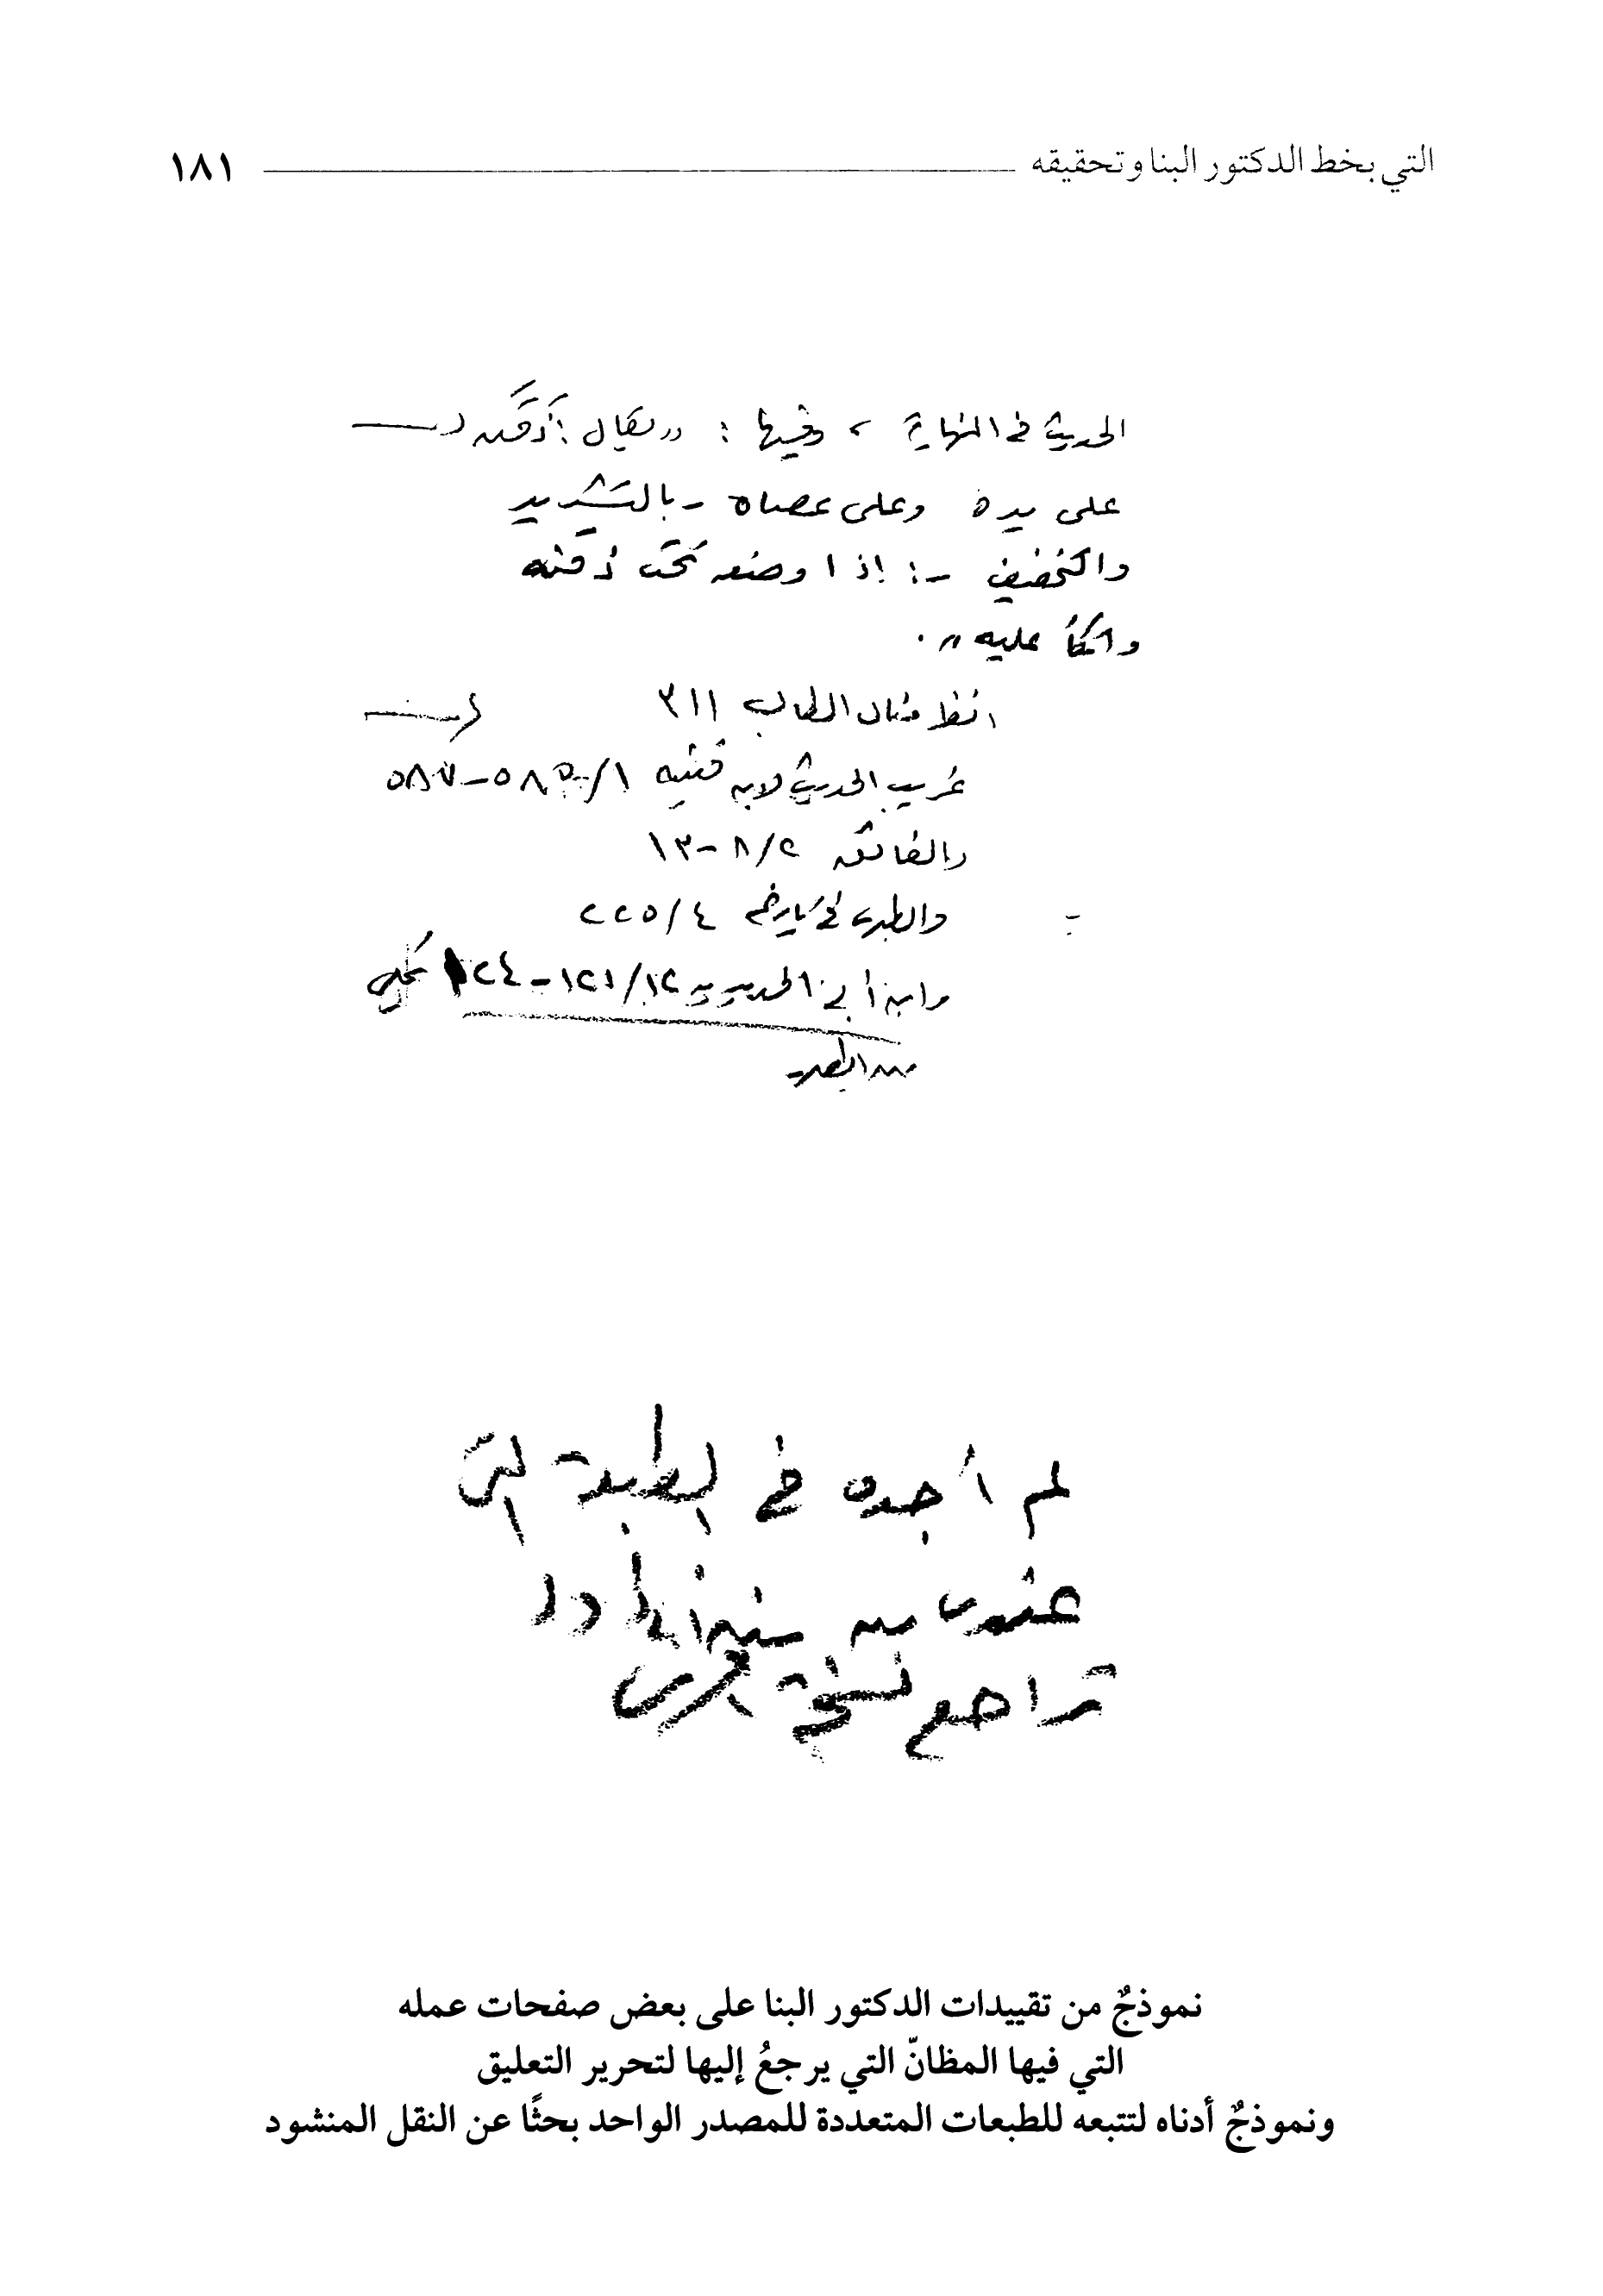 التي بخط الدكتور البنا وتحقيقه ١٨١
الحديث في النهاية ، وفيها : «يقال : ذَقَّن
على يده وعلى عصاه - بالتشديد
والتخفيف - : إذا وضعه تحت ذقنه
واتكأ عليه» .
انظر منال الطالب ٣١١
غريب الحديث لابن قتيبة ١/٥٨٥-٥٨٧
والفائق ٢/٨-١٣
والطبري في تاريخه ٤/٢٢٥
وابن أبي الحديد ١٢/١٢١-١٢٤
لم أجده في الطبعة التي
عندي من سنن أبي داود
تراجع نسخة أخرى
نموذجٌ من تقييدات الدكتور البنا على بعض صفحات عمله
التي فيها المظانّ التي يرجعُ إليها لتحرير التعليق
ونموذجٌ أدناه لتتبعه للطبعات المتعددة للمصدر الواحد بحثًا عن النقل المنشود